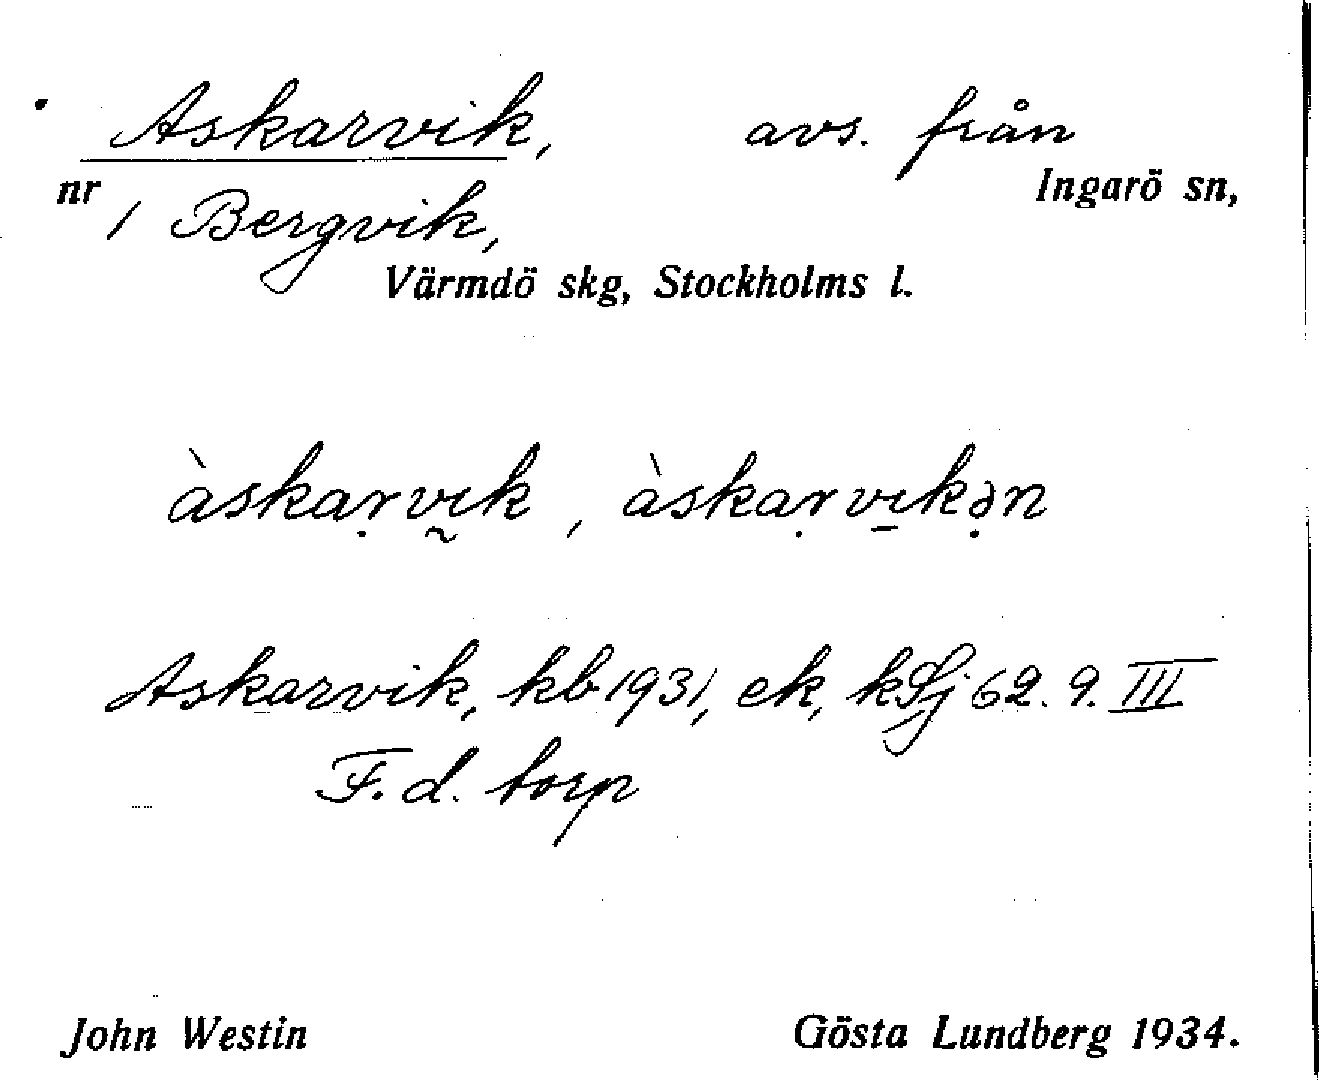 Askarvik, avs. från
nr 1 Bergvik, Ingarö sn,
Värmdö skg, Stockholms l.
àskaṛvı̰k, àskaṛvı̱kə̣n
Askarvik, kb 1931, ek, kSj 62. 9. III
F. d. torp
John Westin Gösta Lundberg 1934.